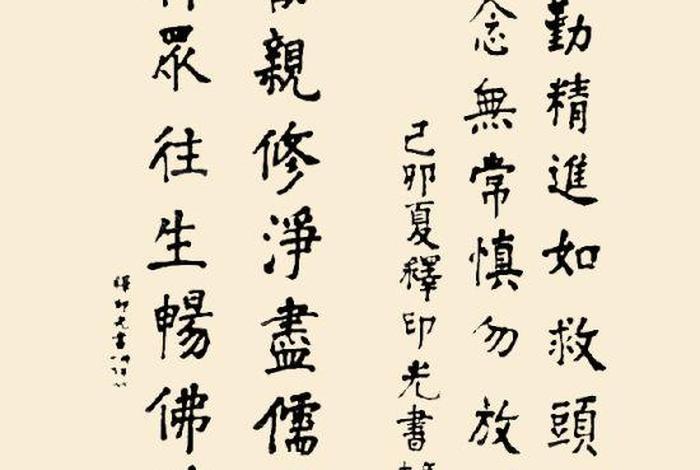 勤精進如救頭
念無常慎勿放
己卯夏釋印光書
親修淨盡儒
眾往生暢佛
釋印光書